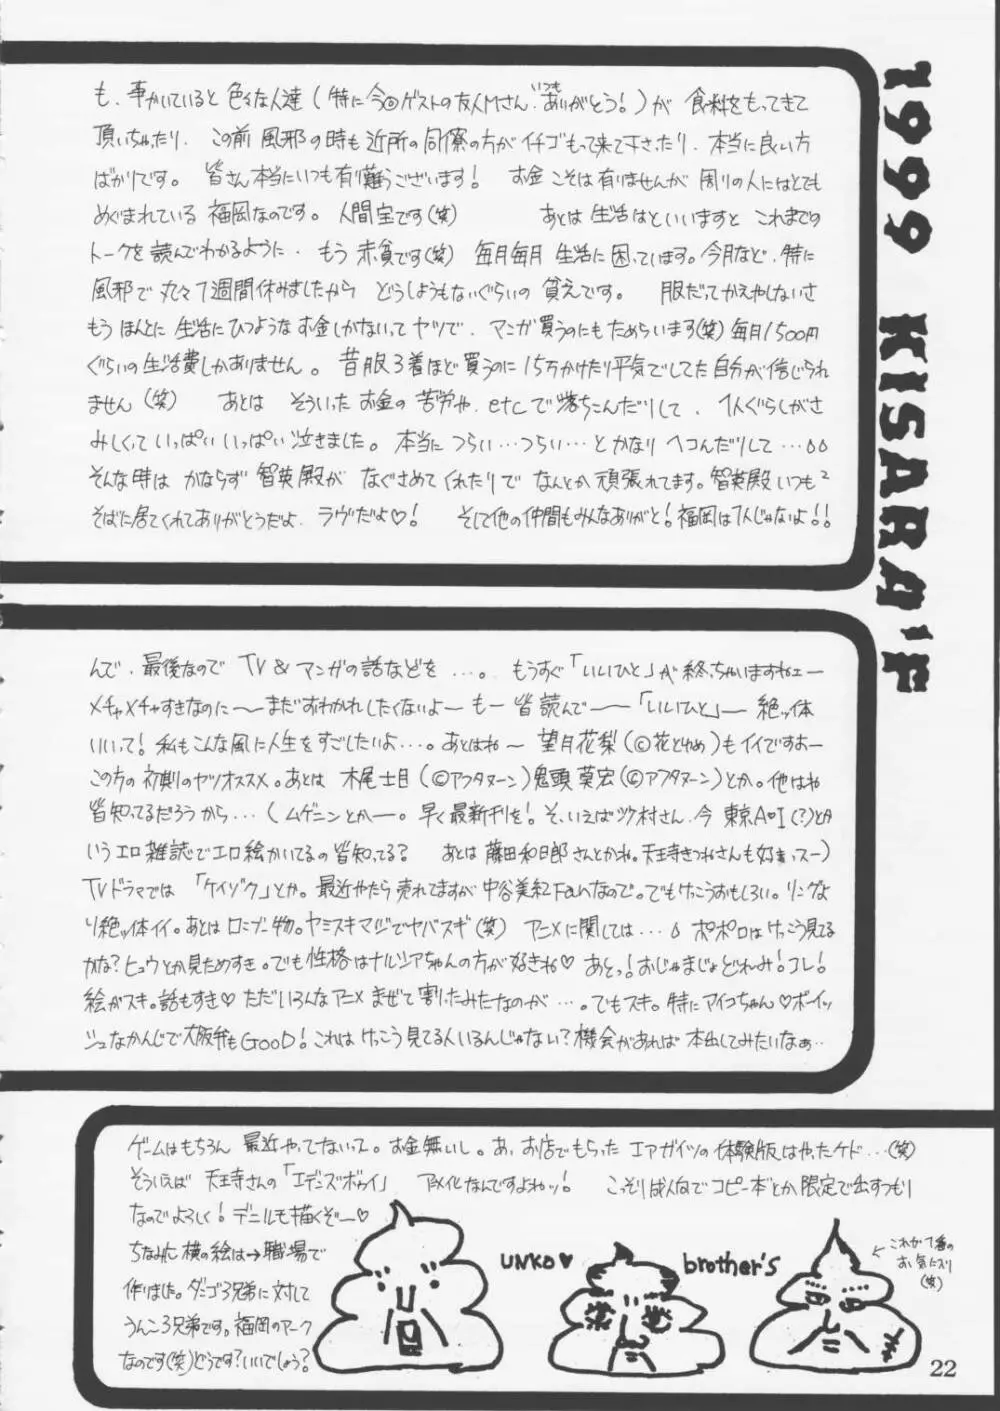 も、事かいていると色々な人達(特に今回ゲストの友人Mさん、いつもありがとう！)が 食料をもってきて
頂いちゃったり、この前 風邪の時も近所の同僚の方がイチゴもって来て下さったり、本当に良い方
ばかりです。皆さん本当にいつも有り難うございます！ お金こそは有りませんが 周りの人にはとても
めぐまれている 福岡なのです。人間宝です(笑) あとは 生活はといいますと これまでの
トークを読んでわかるように、もう 赤貧です(笑) 毎月毎月 生活に困っています。今月など、特に
風邪で丸々1週間休みましたから どうしようもないぐらいの 貧えです。 服だってかえやしないさ
もう ほんとに 生活にひつような お金しかないってヤツで、マンガ買うのにもためらいます(笑)毎月1500円
ぐらいの生活費しかありません。昔服3着ほど 買うのに 15万かけたり平気でしてた自分が信じられ
ません(笑) あとは そういったお金の苦労や、etcで落ちこんだりして、1人ぐらしがさ
みしくって いっぱい いっぱい 泣きました。本当に つらい…つらい…と かなり ヘコんだりして…
そんな時は かならず 智英殿が なぐさめて くれたりで なんとか 頑張れてます。智英殿 いつも2
そばに居てくれてありがとうだよ、ラヴだよ♡！ そして他の仲間もみんなありがと！福岡は1人じゃないよ！！
1999 KISARA'F
んで、最後なので TV & マンガの話などを …。もうすぐ「いいひと」が終っちゃいますねェー
メチャメチャすきなのに〜まだおわかれしたくないよ〜もー皆読んで〜「いいひと」〜絶ッ体
いいって！私もこんな風に人生をすごしたいよ…。あとはね〜 望月花梨(©花とゆめ)もイイですおー
この方の初期のヤツオススメ。あとは 木尾士目(©アフタヌーン)鬼頭莫宏(©アフタヌーン)とか。他はね
皆知ってるだろうから…(ムゲニンとかー。早く最新刊を！そ、いえばツ村さん、今 東京A♥I(?)とか
いうエロ雑誌でエロ絵かいてるの皆知ってる？ あとは 藤田和日郎さんとかね。天王寺きつねさんも好きっスー)
TVドラマでは 「ケイゾク」とか。最近やたら売れてますが中谷美紀Fanなので。でもけっこうおもしろい。リングよ
り絶ッ体イイ。あとはロニーブー物。ヤミスキマジでヤバスギ(笑) アニメに関しては… ポポロはけっこう見てる
かな？ヒュウとか見ためすき。でも性格はナルシアちゃんの方が好きね♡ あとっ！おじゃまじょどれみ！コレ！
絵がスキ。話もすき♡ ただいろんなアニメ まぜて 割ったみたなのが …。でもスキ。特にアイコちゃん♡ボーイッ
シュなかんじで大阪弁もGOOD！これは けっこう見てる人いるんじゃない？機会があれば 本出してみたいなぁ…
ゲームはもちろん 最近やってないって。お金無いし。あ、お店でもらった エアガイツの体験版はやったケド…(笑)
そういえば 天王寺さんの「エデンズボゥイ」 アニメ化なんですよねッ！ こっそりば人向でコピー本とか 限定で出すつもり
なのでよろしく！デニルも描くぞー♡
ちなみに横の絵は→職場で
作りました。ダンゴ3兄弟に対して
うんこ3兄弟です。福岡のアーク
なのです(笑)どうです？いいでしょう？
UNKO♥ brother's
これが1番の
お気に入り
(笑)
22